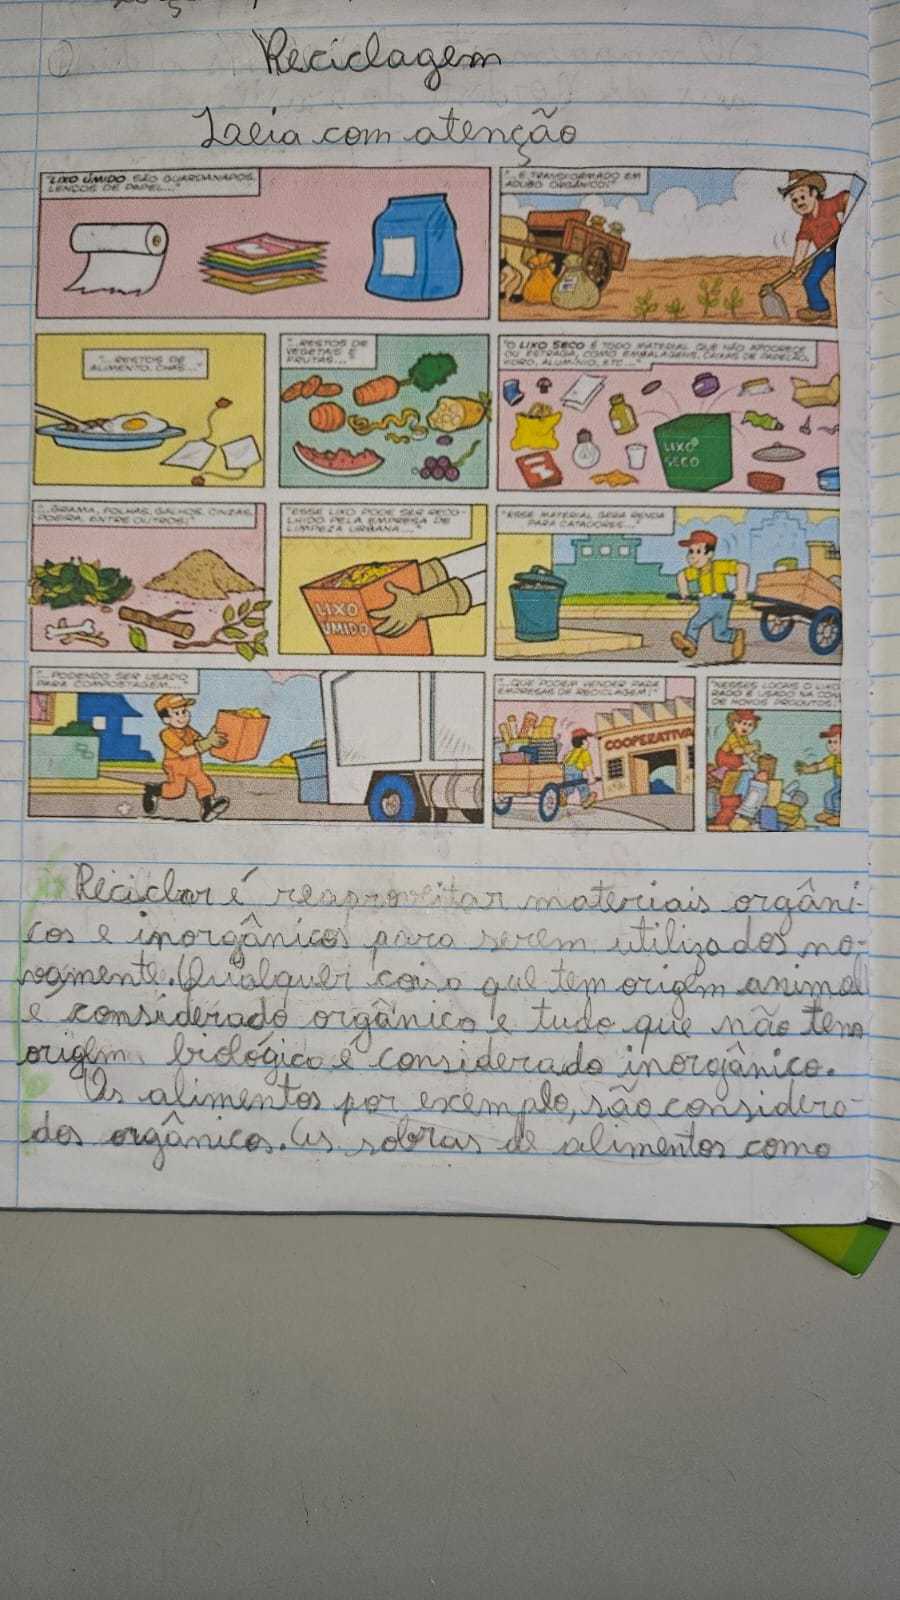 Reciclagem
Leia com atenção
"LIXO ÚMIDO SÃO GUARDANAPOS,
LENÇOS DE PAPEL..."
"...RESTOS DE
ALIMENTO, CHÁS..."
"...RESTOS DE
VEGETAIS E
FRUTAS..."
"...GRAMA, FOLHAS, GALHOS, CINZAS,
POEIRA, ENTRE OUTROS!"
"ESSE LIXO PODE SER RECO-
LHIDO PELA EMPRESA DE
LIMPEZA URBANA..."
LIXO
ÚMIDO
"...PODENDO SER USADO
PARA COMPOSTAGEM..."
"...E TRANSFORMADO EM
ADUBO ORGÂNICO!"
"O LIXO SECO É TODO MATERIAL QUE NÃO APODRECE
OU ESTRAGA, COMO EMBALAGENS, CAIXAS DE PAPELÃO,
VIDRO, ALUMÍNIO, ETC..."
LIXO
SECO
"ESSE MATERIAL GERA RENDA
PARA CATADORES..."
"...QUE PODEM VENDER PARA
EMPRESAS DE RECICLAGEM!"
COOPERATIVA
"NESSES LOCAIS O LIXO
RADO E USADO NA
DE NOVOS PRODUTOS
Reciclar é reaproveitar materiais orgâni-
cos e inorgânicos para serem utilizados no-
vamente. Qualquer coisa que tem origem animal
e considerado orgânico e tudo que não tem
origem biológica é considerado inorgânico.
Os alimentos por exemplo, são considera-
dos orgânicos. As sobras de alimentos como